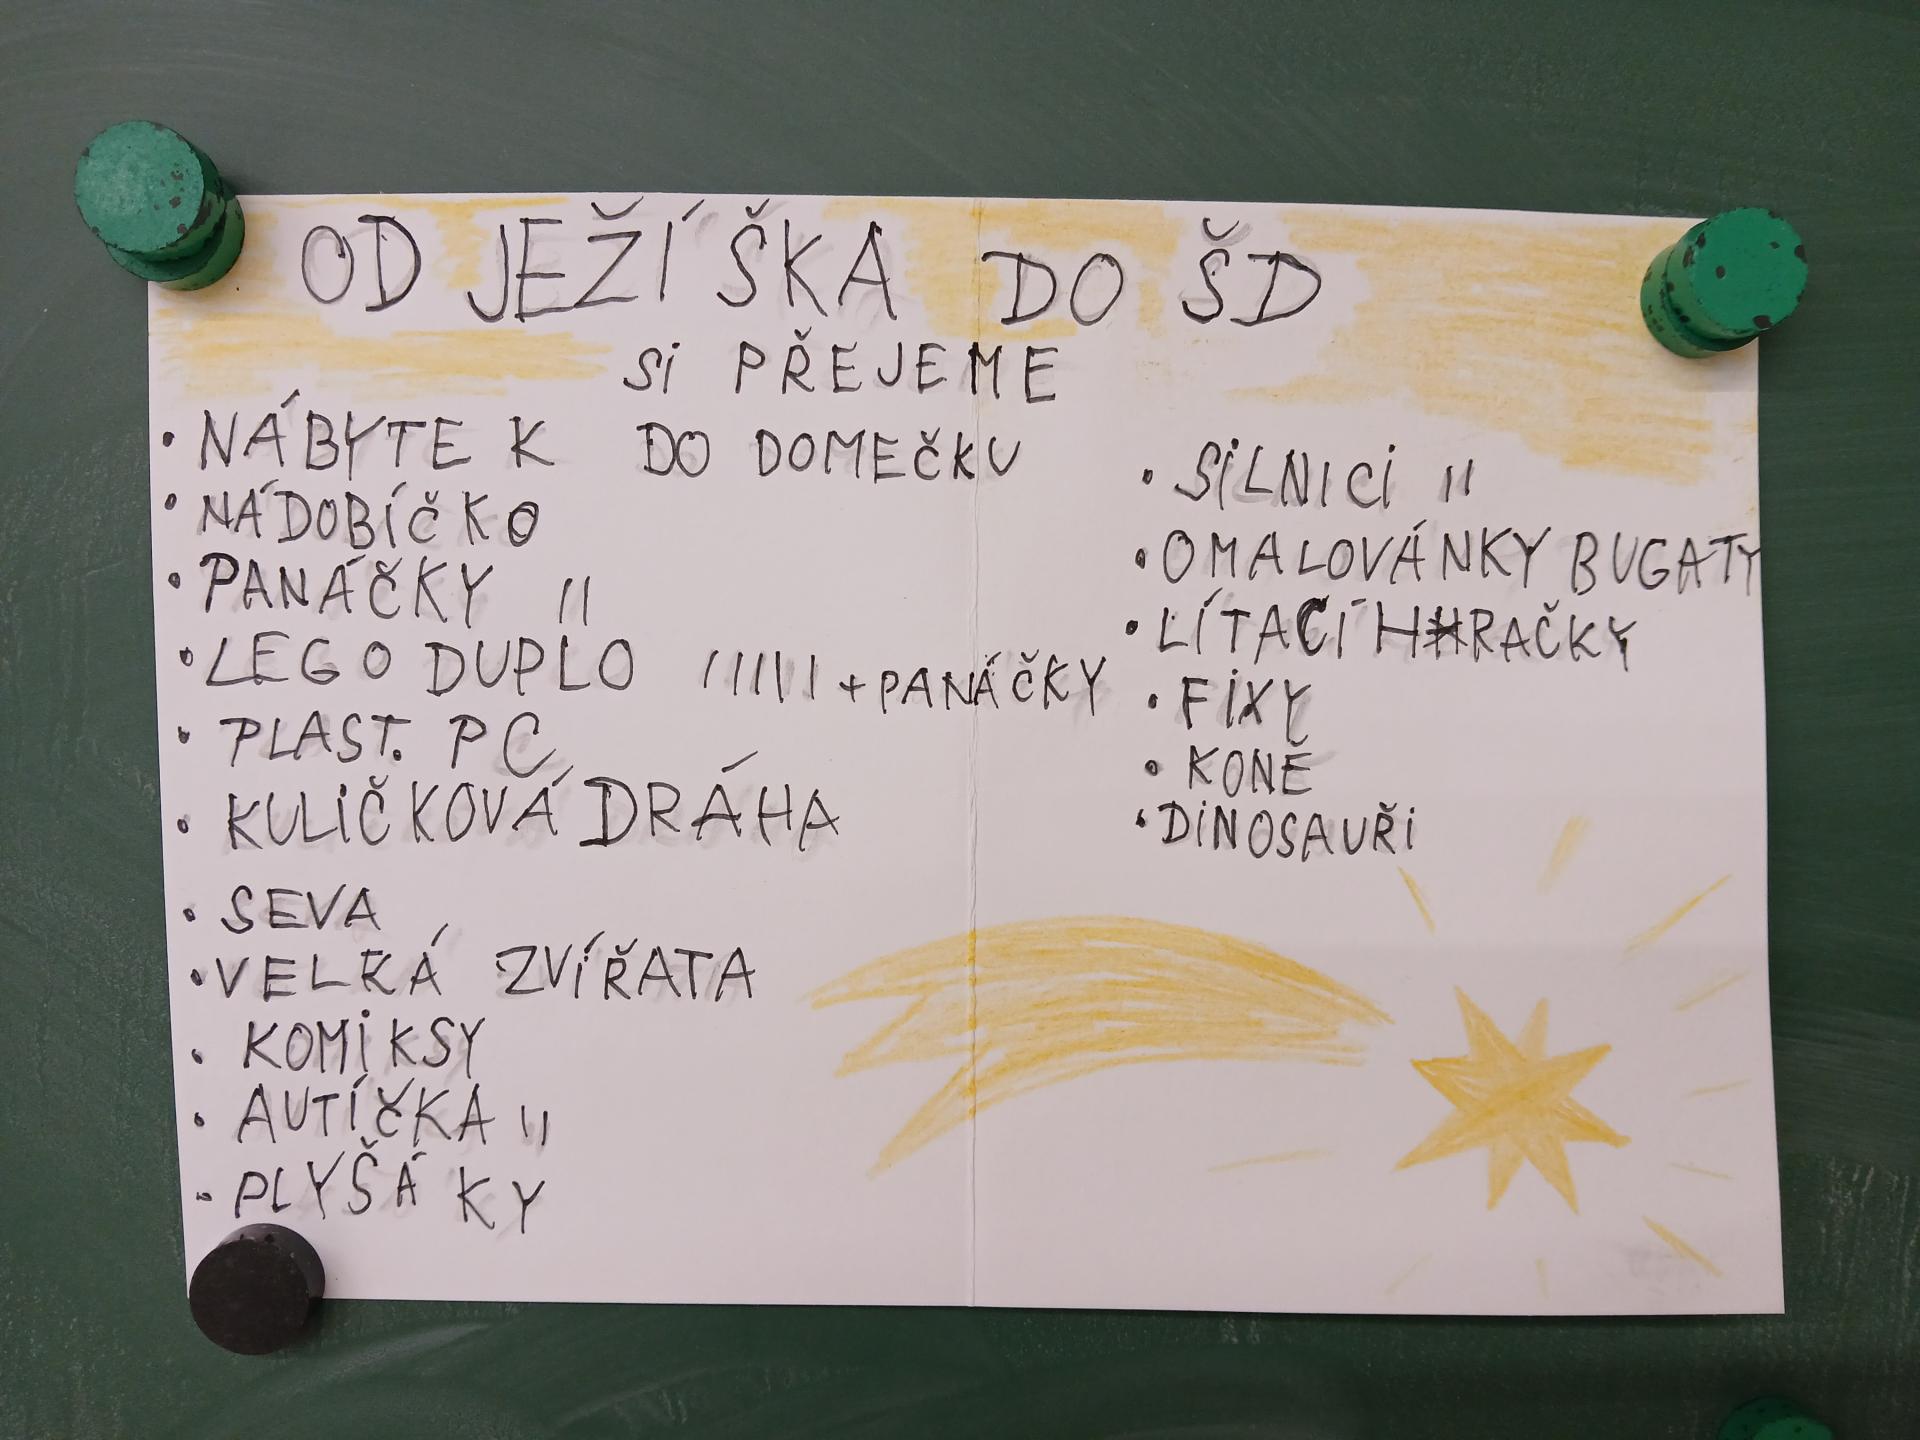 OD JEŽÍŠKA DO ŠD
Si PŘEJEME
• NÁBYTEK DO DOMEČKU
• NÁDOBÍČKO
• PANÁČKY II
• LEGO DUPLO IIIII + PANÁČKY
• PLAST. PC
• KULiČKOVÁ DRÁHA
• SEVA
• VELKÁ ZVÍŘATA
• KOMiKSY
• AUTÍČKA II
• PLYŠÁKY
• SiLNICi II
• OMALOVÁNKY BUGATY
• LÍTACÍ HRAČKY
• FiXY
• KONĚ
• DiNOSAUŘi